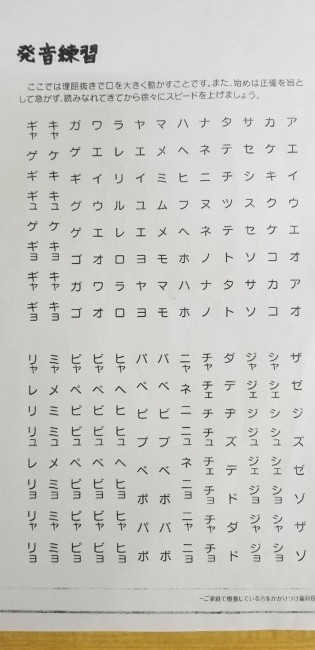 発音練習
ここでは理屈抜きで口を大きく動かすことです。また、始めは正確を旨と
して急がず、読みなれてきてから徐々にスピードを上げましょう。
ア エ イ ウ エ オ ア オ
カ ケ キ ク ケ コ カ コ
サ セ シ ス セ ソ サ ソ
タ テ チ ツ テ ト タ ト
ナ ネ ニ ヌ ネ ノ ナ ノ
ハ ヘ ヒ フ ヘ ホ ハ ホ
マ メ ミ ム メ モ マ モ
ヤ エ イ ユ エ ヨ ヤ ヨ
ラ レ リ ル レ ロ ラ ロ
ワ エ イ ウ エ オ ワ オ
ガ ゲ ギ グ ゲ ゴ ガ ゴ
キャ ケ キ キュ ケ キョ キャ キョ
ギャ ゲ ギ ギュ ゲ ギョ ギャ ギョ
ザ ゼ ジ ズ ゼ ゾ ザ ゾ
シャ シェ シ シュ シェ ショ シャ ショ
ジャ ジェ ジ ジュ ジェ ジョ ジャ ジョ
ダ デ ヂ ズ デ ド ダ ド
チャ チェ チ チュ チェ チョ チャ チョ
ニャ ネ ニ ニュ ネ ニョ ニャ ニョ
バ ベ ビ ブ ベ ボ バ ボ
パ ペ ピ プ ペ ポ パ ポ
ヒャ ヘ ヒ ヒュ ヘ ヒョ ヒャ ヒョ
ビャ ベ ビ ビュ ベ ビョ ビャ ビョ
ピャ ペ ピ ピュ ペ ピョ ピャ ピョ
ミャ メ ミ ミュ メ ミョ ミャ ミョ
リャ レ リ リュ レ リョ リャ リョ
ーご家庭で療養している方をかかりつけ歯科医